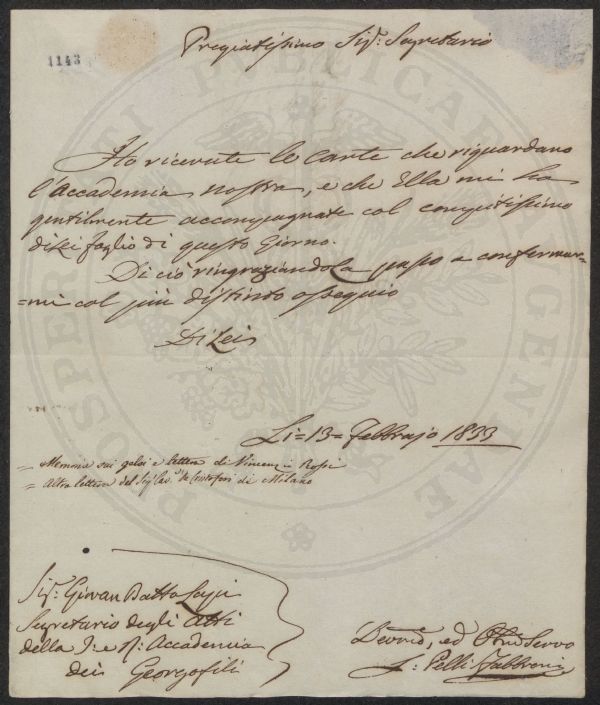 1143
Pregiatissimo Sigr. Segretario
Ho ricevute le Carte che riguardano
l'Accademia nostra, e che Ella mi ha
gentilmente accompagnate col compitissimo
di Lei foglio di questo Giorno.
Di ciò ringraziandola passo a confermar=
=mi col più distinto ossequio
Di Lei
Li = 13 = Febbrajo 1833
= Memoria sui gelsi e lettera di Vincenzio Rossi
= Altra lettera del Sig. Cav. De Cristofori di Milano
Sigr. Giovan Batta
Segretario degli Atti
della I: e R: Accademia
dei Georgofili
Devmo, ed Obbmo Servo
Pelli Fabbroni
PROSPERITATI PUBLICAE AUGENDAE